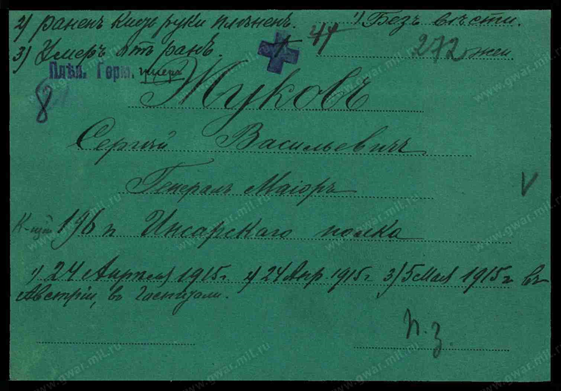 2) раненъ кисть руки плѣненъ. 1) Безъ вѣсти.
3) Умеръ отъ ранъ. 44 272 жен
Плѣн. Герм. умеръ
8
Жуковъ
Сергѣй Васильевичъ
Генералъ Маіоръ
V
К-щій 196 п Инсарскаго полка
1) 24 Апрѣля 1915г. 2) 24 Апр 1915г. 3) 5 Мая 1915г въ
Австріи, въ госпитали.
п.з.
www.gwar.mil.ru